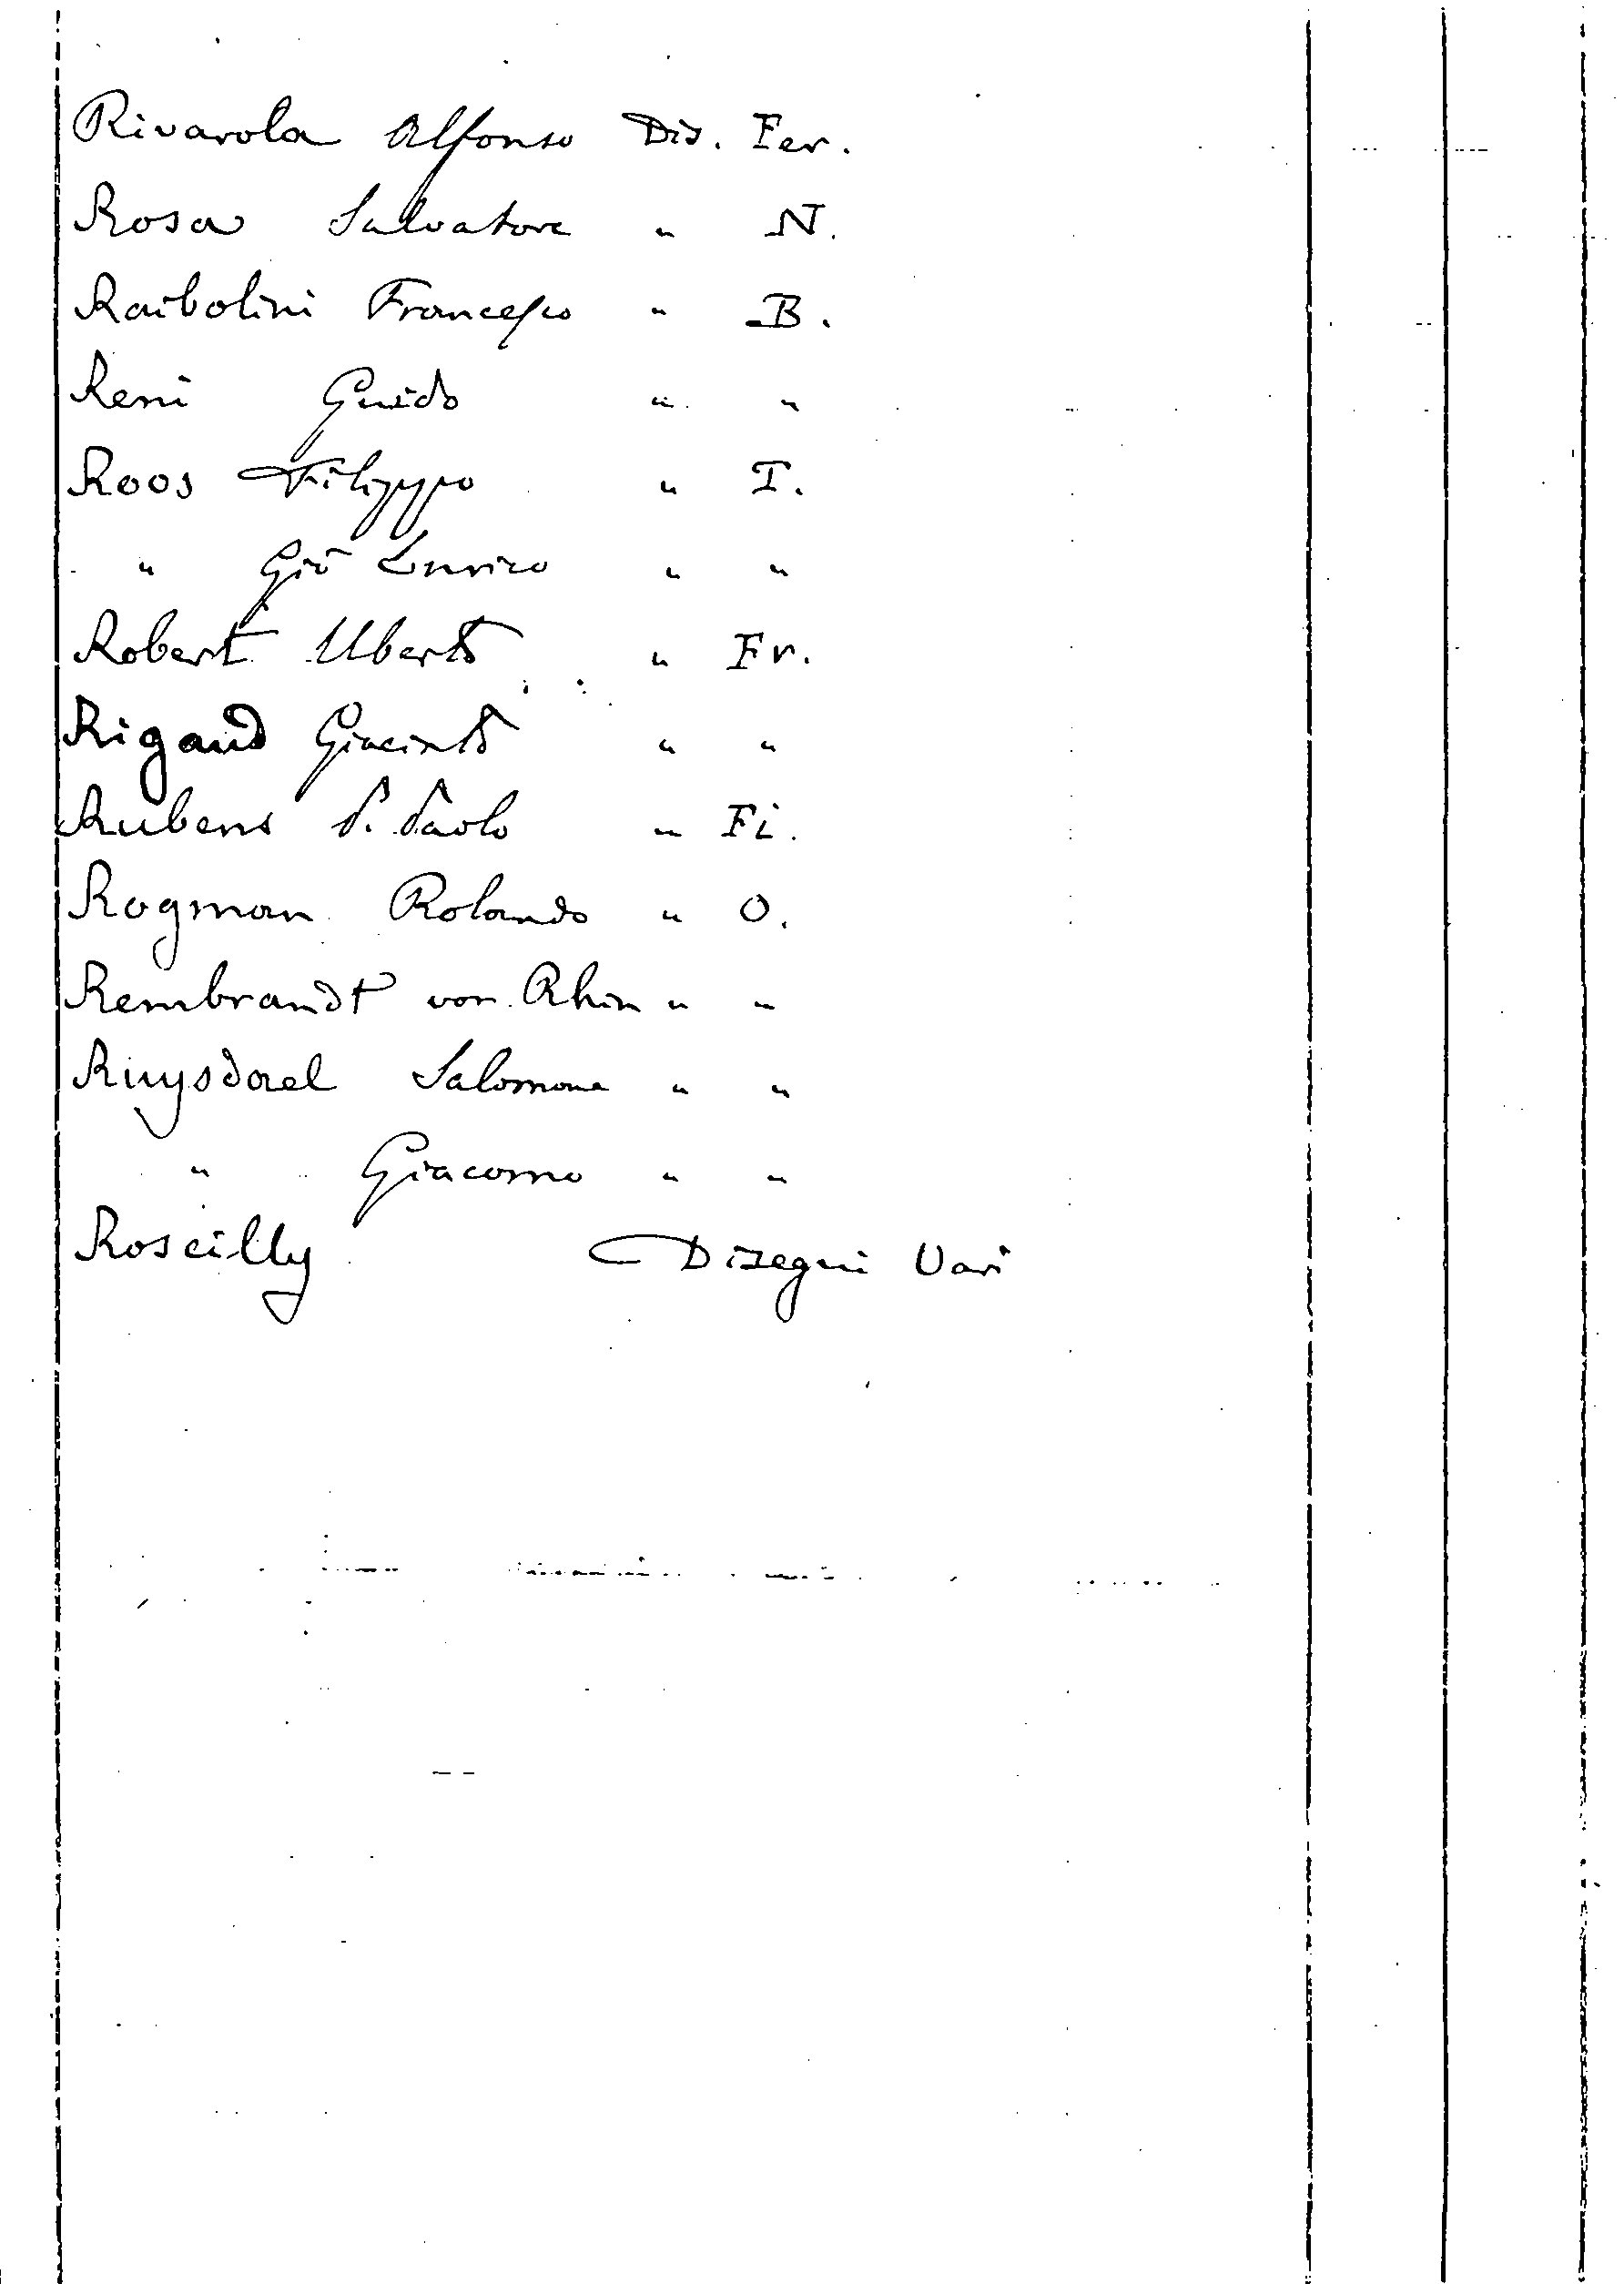 Rivarola Alfonso Dis. Fer.
Rosa Salvatore " N.
Raibolini Francesco " B.
Reni Guido " "
Roos Filippo " T.
" Giō Enrico " "
Robert Uberto " Fr.
Rigaud Giacinto " "
Rubens P. Paolo " Fi.
Rogman Rolando " O.
Rembrandt von Rhin " "
Ruysdael Salomone " "
" Giacomo " "
Roscilly Disegni Vari